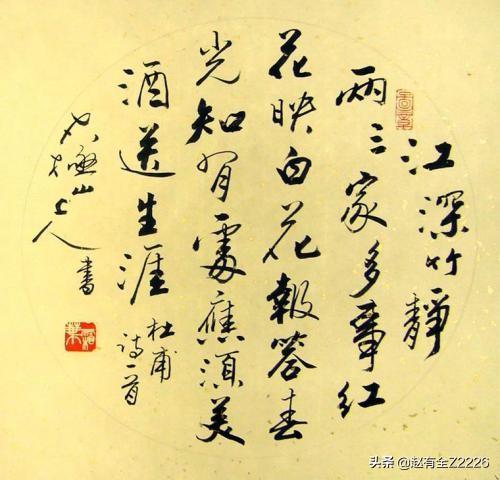 江深竹靜
兩三家多事紅
花映白花報答春
光知有處應須美
酒送生涯
杜甫
詩一首
極山人書
头条 @赵有全Z2226